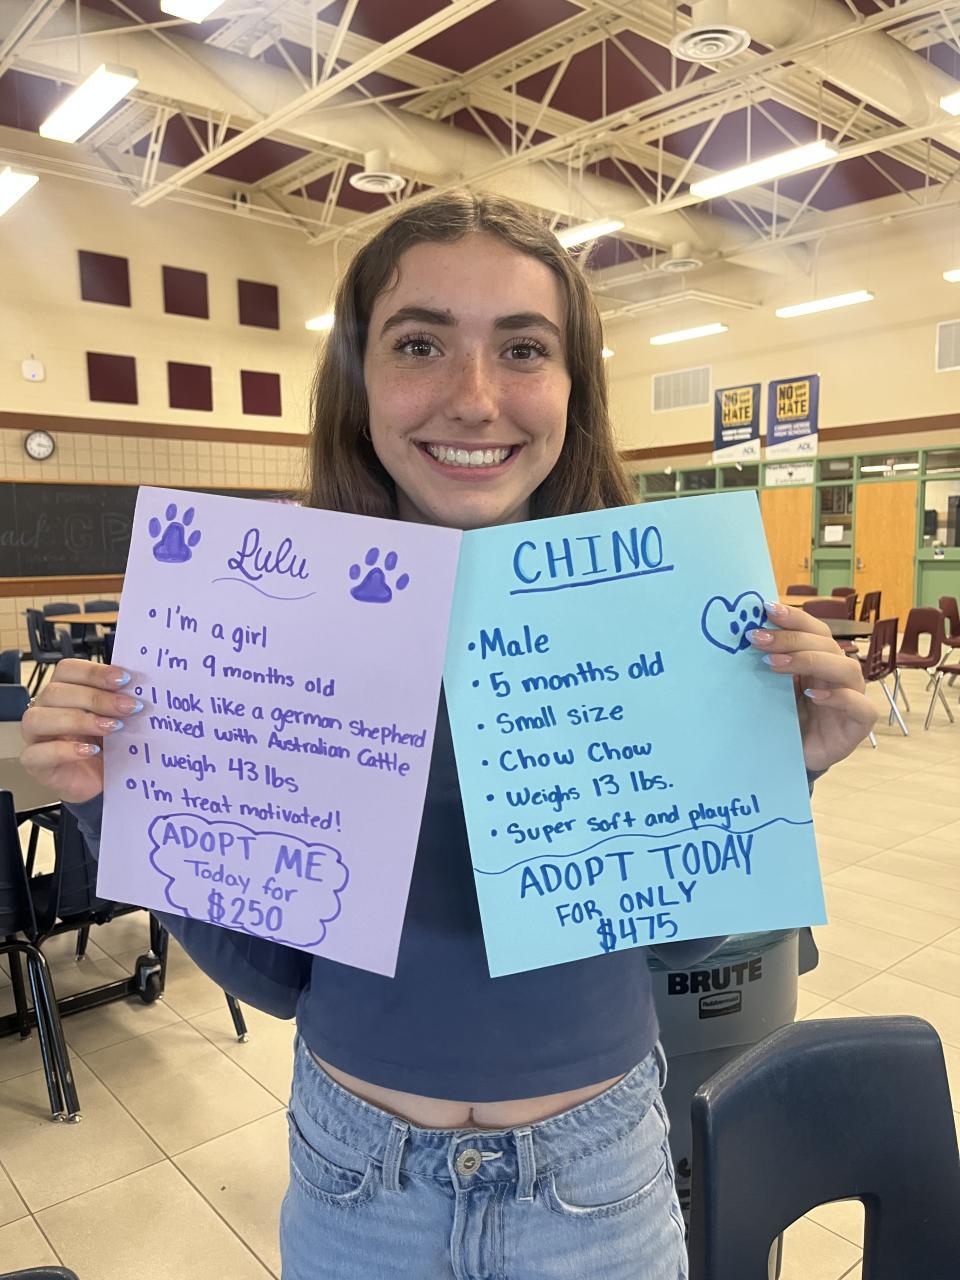 Lulu
• I'm a girl
• I'm 9 months old
• I look like a german shepherd
mixed with Australian Cattle
• I weigh 43 lbs
• I'm treat motivated!
ADOPT ME
Today for
$250
CHINO
• Male
• 5 months old
• Small size
• Chow Chow
• Weighs 13 lbs.
• Super soft and playful
ADOPT TODAY
FOR ONLY
$475
NO
HATE
ADL
NO
HATE
ADL
BRUTE
Rubbermaid